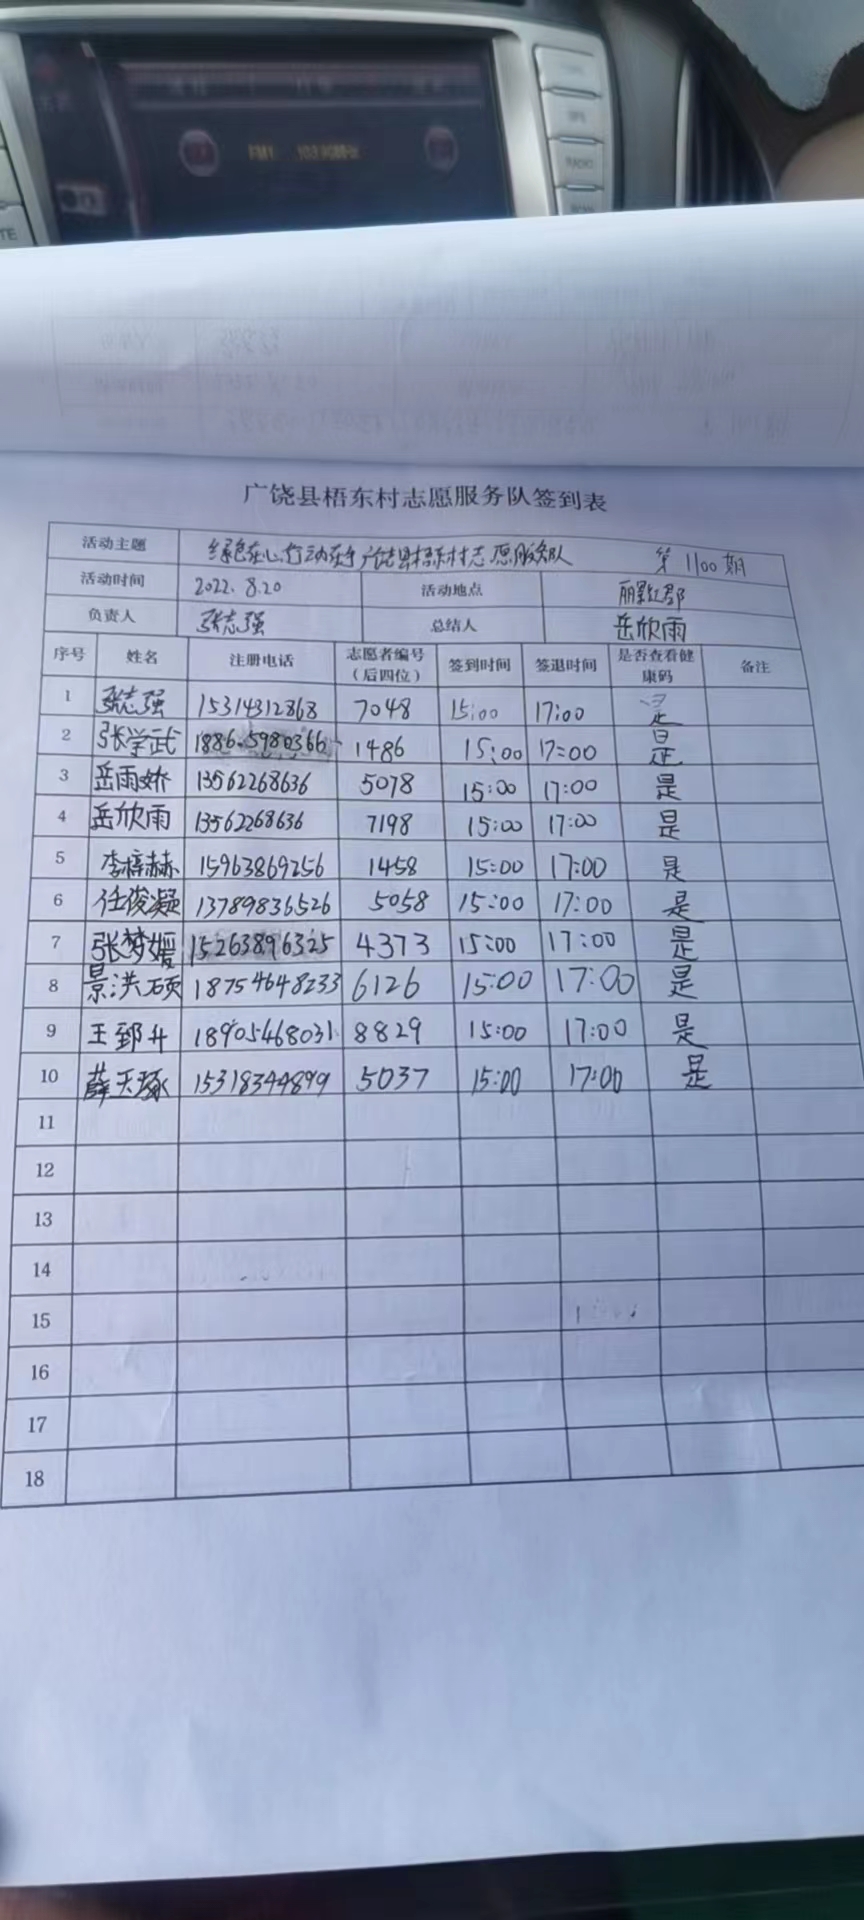 TE
FM1
广饶县梧东村志愿服务队签到表
活动主题 绿色在心,行动在手广饶县梧东村志愿服务队 第1100期
活动时间 2022.8.20 活动地点 丽景红郡
负责人 张志强 总结人 岳欣雨
序号 姓名 注册电话 志愿者编号(后四位) 签到时间 签退时间 是否查看健康码 备注
1 张志强 15314312868 7048 15:00 17:00 是
2 张学武 18865980366 1486 15:00 17:00 是
3 岳雨娇 13562268636 5078 15:00 17:00 是
4 岳欣雨 13562268636 7198 15:00 17:00 是
5 李梓赫 15963869256 1458 15:00 17:00 是
6 任俊凝 13789836526 5058 15:00 17:00 是
7 张梦媛 15263896325 4373 15:00 17:00 是
8 景洪硕 18754648233 6126 15:00 17:00 是
9 王郅升 18905468031 8829 15:00 17:00 是
10 薛天琢 15318344899 5037 15:00 17:00 是
11
12
13
14
15
16
17
18